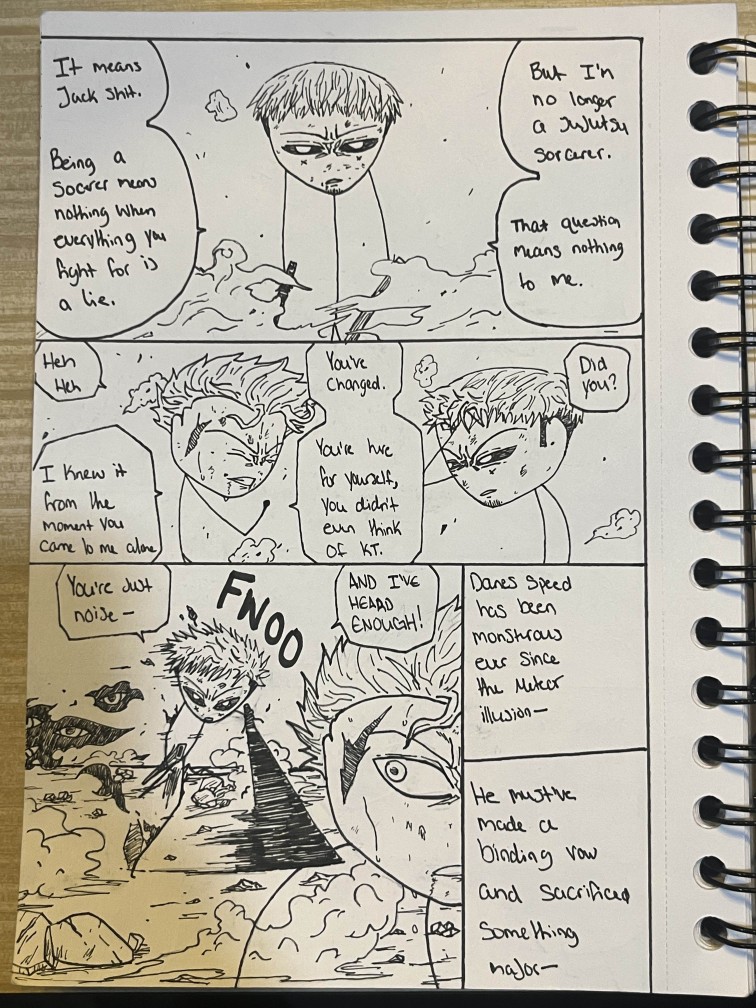 It means
Jack shit.
Being a
Socrer means
nothing when
everything you
fight for is
a lie.
But I'm
no longer
a JuJutsu
Sorcerer.
That question
means nothing
to me.
Heh
Heh
I knew it
from the
moment you
came to me alone
You've
changed.
You're here
for yourself,
you didn't
even think
OF KT.
Did
you?
You're Just
noise—
FWOO
AND I'VE
HEARD
ENOUGH!
Danes Speed
has been
monstrous
ever since
the Meteor
illusion—
He must've
made a
binding vow
and Sacrificed
Something
major—